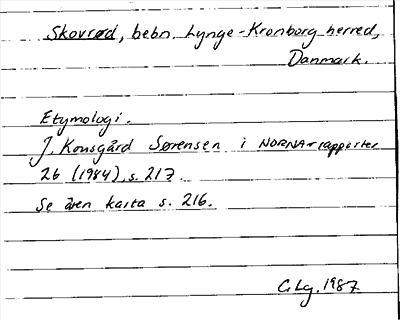 Skovrød, bebn. Lynge-Kronborg herred,
Danmark.
Etymologi.
J. Kousgård Sørensen i NORNA-rapporter
26 (1984), s. 217.
Se även karta s. 216.
G. Lg. 1987